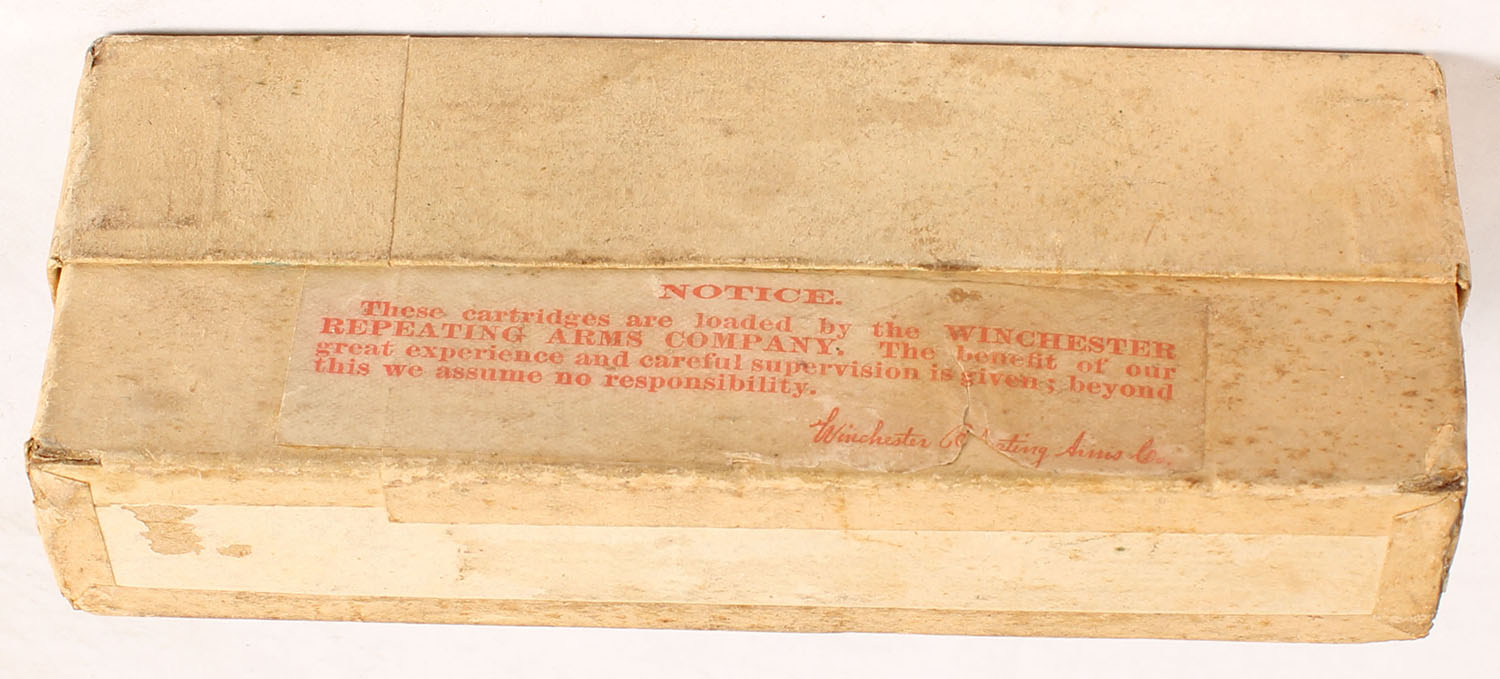 NOTICE.
These cartridges are loaded by the WINCHESTER
REPEATING ARMS COMPANY. The benefit of our
great experience and careful supervision is given; beyond
this we assume no responsibility.
Winchester ating Arms Co.